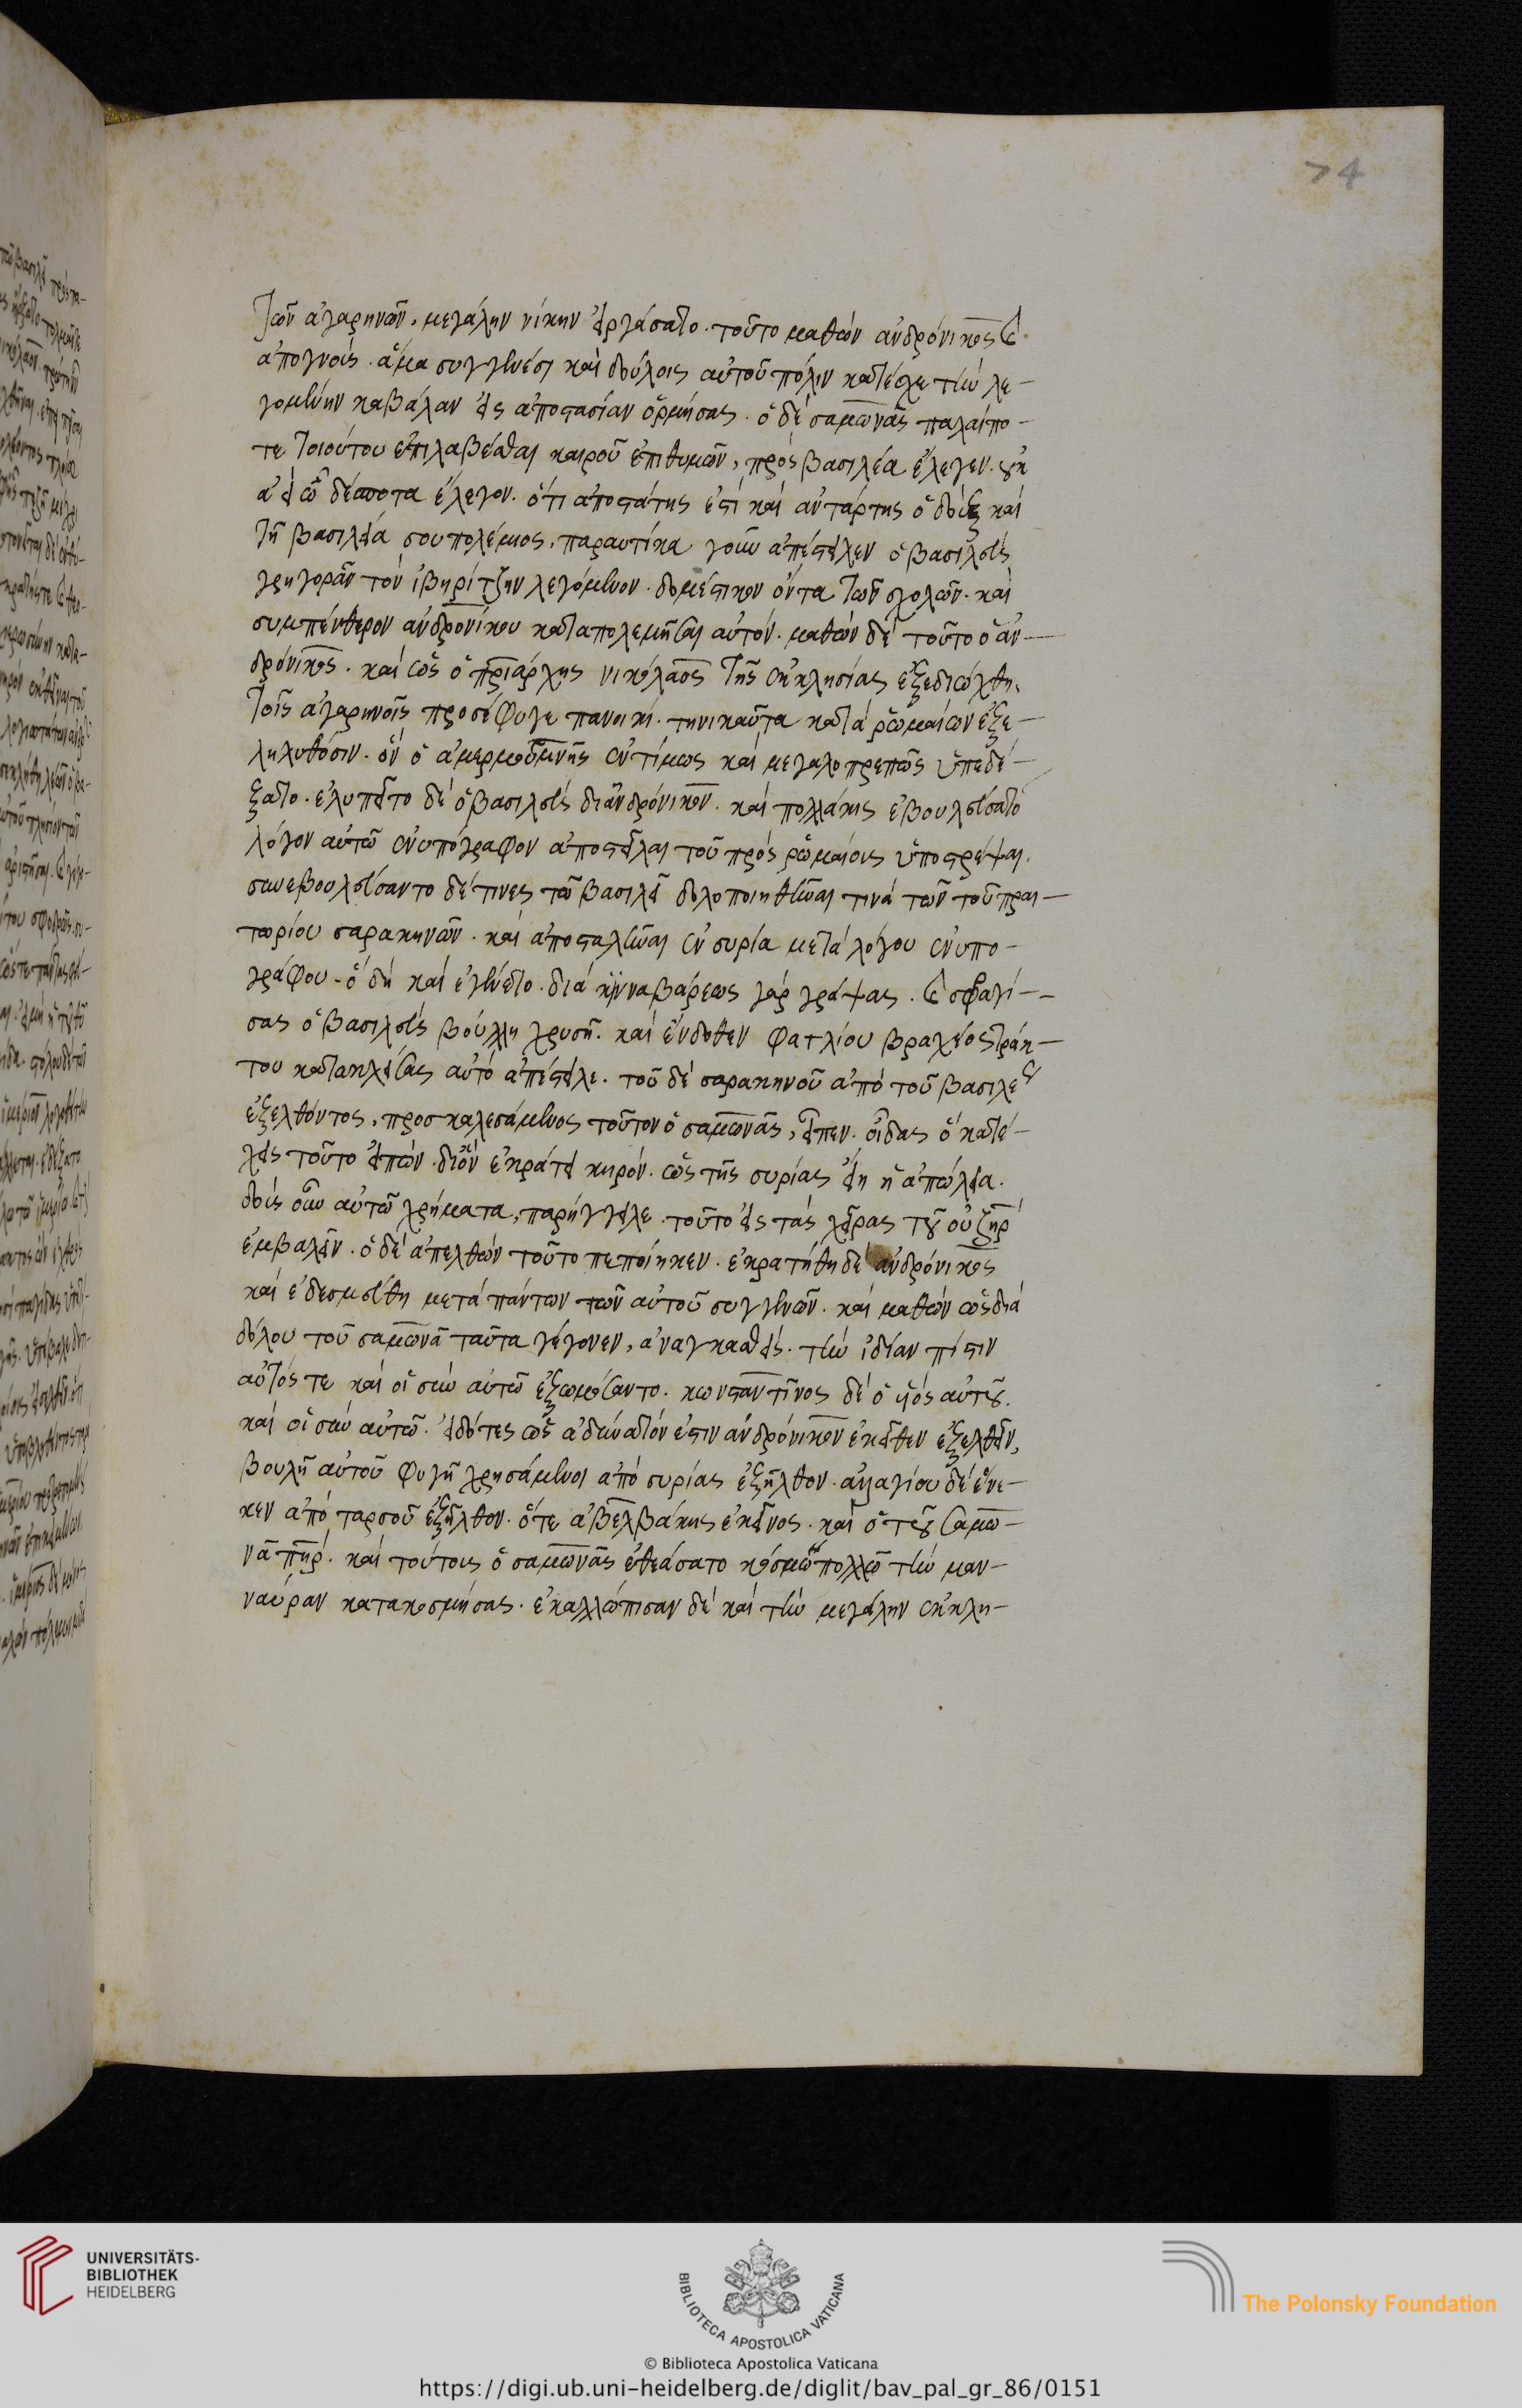 74
τῶν ἀγαρηνῶν, μεγάλην νίκην εἰργάσατο. τοῦτο μαθὼν ἀνδρόνικος καὶ
ἀπογνοὺς. ἅμα συγγενέσι καὶ δούλοις αὐτοῦ πόλιν κατέσχε τὴν λε-
γομένην καβάλαν εἰς ἀποστασίαν ὁρμήσας. ὁ δὲ σαμωνᾶς παλαίπο-
τε τοιούτου ἐπιλαβέσθαι καιροῦ ἐπιθυμῶν, πρὸς βασιλέα ἔλεγεν. οὐκ
ἀεὶ ὦ δέσποτα ἔλεγον. ὅτι ἀποστάτης ἐστὶ καὶ ἀντάρτης ὁ δοὺξ καὶ
τῆ βασιλεία σου πολέμιος, παραυτίκα γοῦν ἀπέστειλεν ὁ βασιλεὺς
γρηγορᾶν τὸν ἰβηρίτζην λεγόμενον. δομέστικον ὄντα τῶν σχολῶν. καὶ
συμπένθερον ἀνδρονίκου καταπολεμῆσαι αὐτόν. μαθὼν δὲ τοῦτο ὁ ἀν-
δρόνικος. καὶ ὡς ὁ πριάρχης νικόλαος τῆς ἐκκλησίας ἐξεδιώχθη,
τοῖς ἀγαρηνοῖς προσέφυγε πανοικί. τηνικαῦτα κατὰ ῥωμαίων ἐξε-
ληλυθόσιν. ὃν ὁ ἀμερμουμνῆς ἐντίμως καὶ μεγαλοπρεπῶς ὑπεδέ-
ξατο. ἐλυπεῖτο δὲ ὁ βασιλεὺς δι ἀνδρόνικον. καὶ πολλάκις ἐβουλεύσατο
λόγον αὐτῶ ἐνυπόγραφον ἀποστεῖλαι τοῦ πρὸς ῥωμαίοις ὑποστρέψαι.
συνεβουλεύσαντο δέ τινες τῶ βασιλεῖ δολοποιηθῆναι τινὰ τῶν τοῦ πραι-
τωρίου σαρακηνῶν. καὶ ἀποσταλῆναι ἐν συρία μετὰ λόγου ἐνυπο-
γράφου. ὃ δὴ καὶ ἐγένετο. διὰ κινναβάρεως γὰρ γράψας. καὶ σφραγί-
σας ὁ βασιλεὺς βούλλη χρυσῆ. καὶ ἔνδοθεν φατλίου βραχέος τράκ-
του κατακλείσας αὐτὸ ἀπέστειλε. τοῦ δὲ σαρακηνοῦ ἀπὸ τοῦ βασιλέως
ἐξελθόντος, προσκαλεσάμενος τοῦτον ὁ σαμωνᾶς, εἶπεν. οἶδας ὃ κατέ-
χεις τοῦτο εἰπών. δι ὃν ἐκράτει κηρόν. ὡς τῆς συρίας εἴη ἡ ἀπώλεια.
δοὺς οὖν αὐτῶ χρήματα, παρήγγειλε τοῦτο εἰς τὰς χεῖρας τοῦ οὐζὴρ
ἐμβαλεῖν. ὁ δὲ ἀπελθὼν τοῦτο πεποίηκεν. ἐκρατήθη δὲ ἀνδρόνικος
καὶ ἐδεσμεύθη μετὰ πάντων τῶν αὐτοῦ συγγενῶν. καὶ μαθὼν ὡς διὰ
δόλου τοῦ σαμωνᾶ ταῦτα γέγονεν, ἀναγκασθεὶς. τὴν ἰδίαν πίστιν
αὐτός τε καὶ οἱ σὺν αὐτῶ ἐξωμόσαντο. κωνσταντῖνος δὲ ὁ υἱὸς αὐτοῦ.
καὶ οἱ σὺν αὐτῶ. εἰδότες ὡς ἀδύνατόν ἐστιν ἀνδρόνικον ἐκεῖθεν ἐξελθεῖν,
βουλῆ αὐτοῦ φυγῆ χρησάμενοι ἀπὸ συρίας ἐξῆλθον. ἀλλαγίου δὲ ἕνε-
κεν ἀπὸ ταρσοῦ ἐξῆλθον. ὅτε ἀβελβάκης ἐκεῖνος. καὶ ὁ τοῦ σαμω-
νᾶ πηρ. καὶ τούτοις ὁ σαμωνᾶς ἐθεάσατο κόσμω πολλῶ τὴν μαν-
ναύραν κατακοσμήσας. ἐκαλλώπισαν δὲ καὶ τὴν μεγάλην ἐκκλη-
UNIVERSITÄTS-
BIBLIOTHEK
HEIDELBERG
BIBLIOTECA APOSTOLICA VATICANA
The Polonsky Foundation
© Biblioteca Apostolica Vaticana
https://digi.ub.uni-heidelberg.de/diglit/bav_pal_gr_86/0151